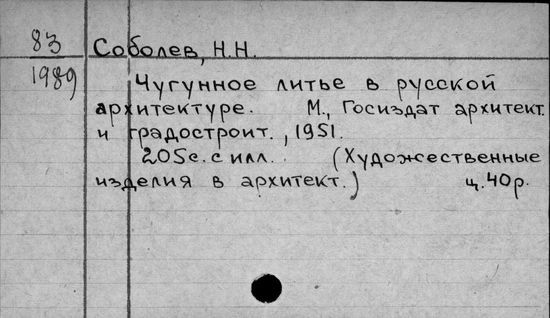 83
Соболев, Н.Н.
1989
Чугунное литье в русской
архитектуре. М., Госиздат архитект.
и градостроит., 1951.
205с. с илл. (Художественные
изделия в архитект.) ц. 40р.